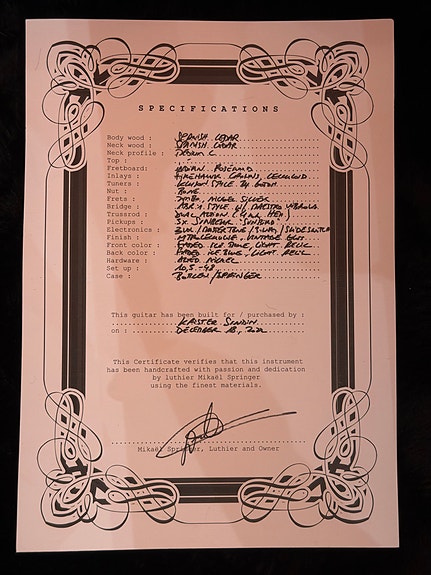 SPECIFICATIONS
Body wood : SPANISH CEDAR
Neck wood : SPANISH CEDAR
Neck profile : MEDIUM C
Top : -
Fretboard: INDIAN ROSEWOOD
Inlays : FIREHAWK CROWNS, CELLULOID
Tuners : KLUSON STYLE BY GOTOH
Nut : BONE
Frets : JUMBO, NICKEL SILVER
Bridge : STYLE W/ MAESTRO VIBROLA
Trussrod : DUAL ACTION (4MM HEX)
Pickups : 3X
Electronics : MASTER TONE / 3-WAY / SLIDESWITCH
Finish : NITROCELLULOSE, VINTAGE
Front color : FADED ICE BLUE, LIGHT RELIC
Back color : FADED ICE BLUE, LIGHT RELIC
Hardware : AGED NICKEL
Set up : 10,5 -48
Case : / SPRINGER
This guitar has been built for / purchased by :
KRISTER SUNDIN
on : DECEMBER 18,
This Certificate verifies that this instrument
has been handcrafted with passion and dedication
by luthier Mikaël Springer
using the finest materials.
Mikaël Springer, Luthier and Owner